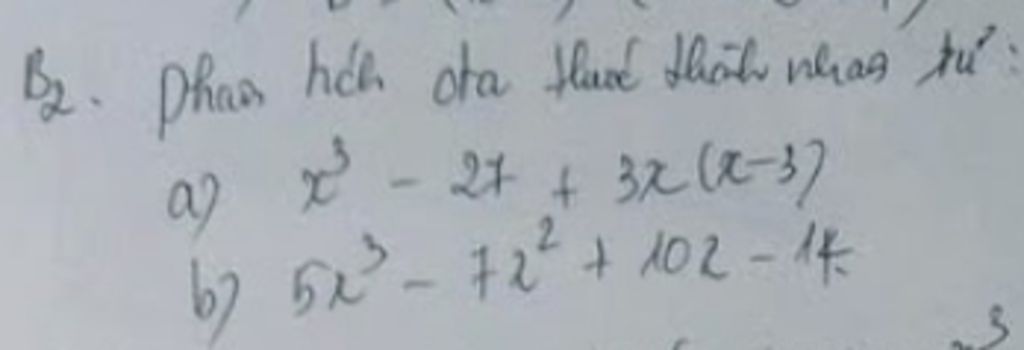 B2. Phân tích đa thức thành nhân tử:
a) x³ - 27 + 3x(x-3)
b) 5x³ - 7x² + 10x - 14